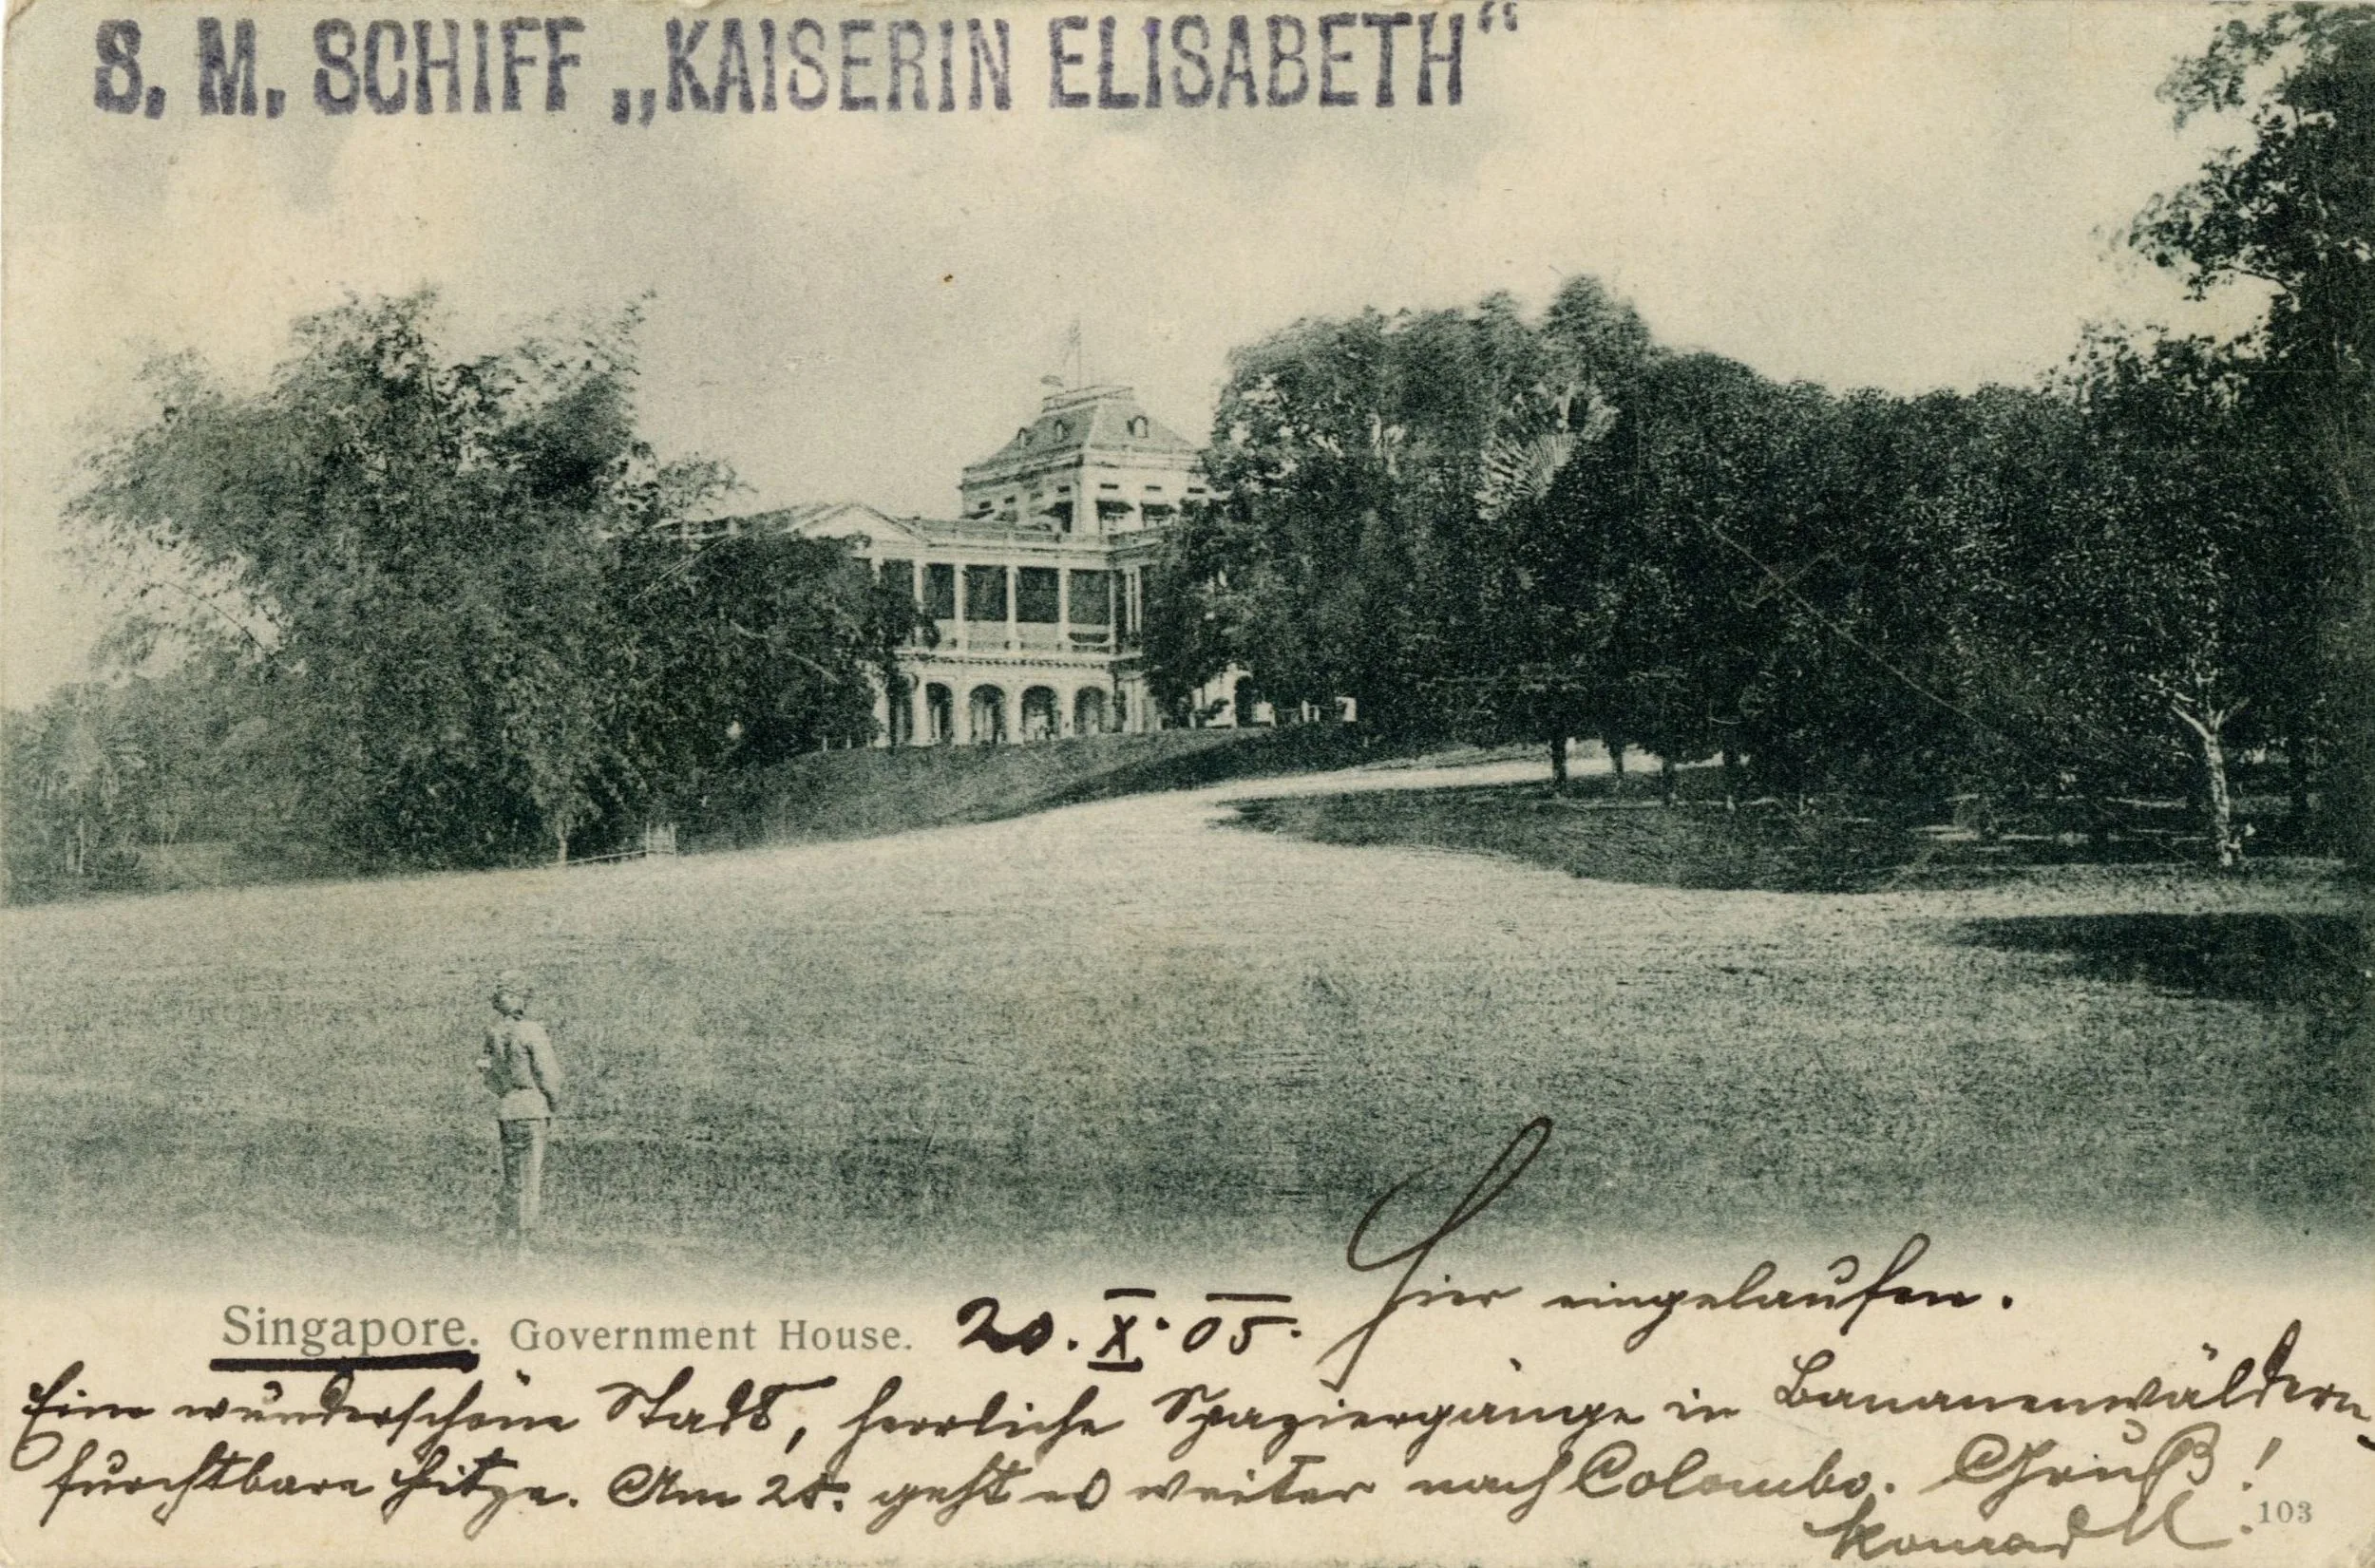 S. M. SCHIFF „KAISERIN ELISABETH“
Singapore. Government House. 20. X. 05. Hier eingelaufen.
Eine wunderschöne Stadt, herrliche Spaziergänge in Bananenwäldern,
furchtbare Hitze. Am geht es weiter nach Colombo. Gruß!
Konrad
103